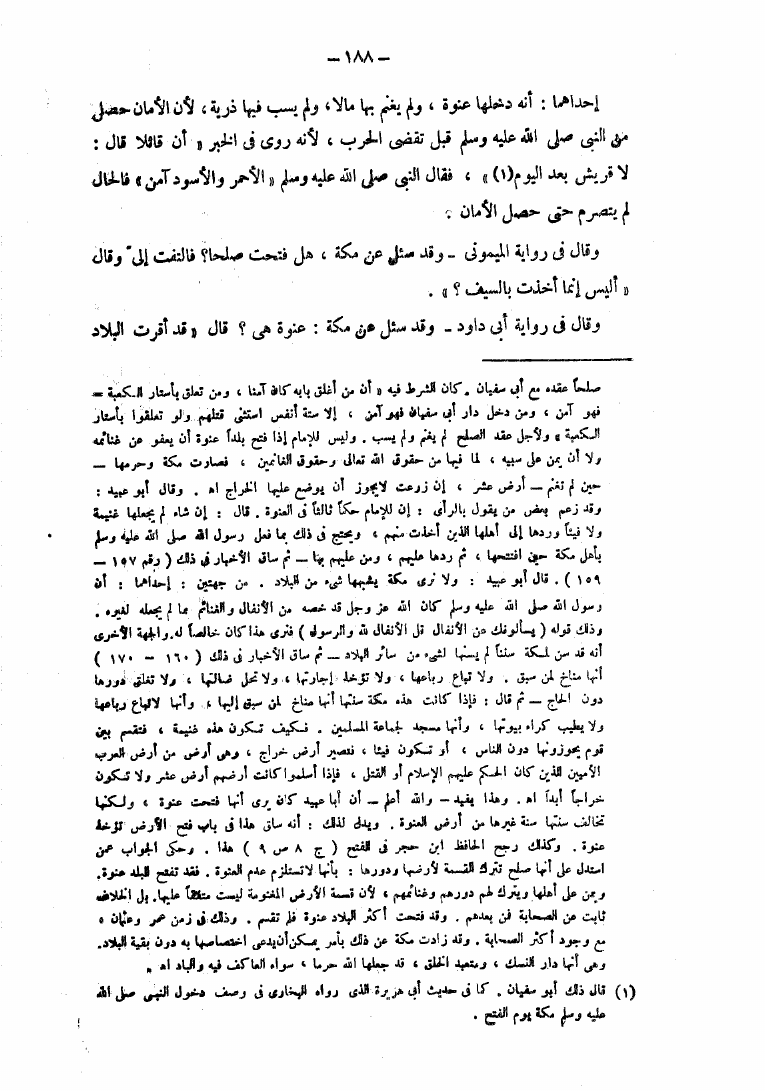 — ١٨٨ —
إحداهما : أنه دخلها عنوة ، ولم يغنم بها مالا، ولم يسب فيها ذرية ، لأن الأمان حصل
من النبى صلى الله عليه وسلم قبل تقضى الحرب ، لأنه روى فى الخبر « أن قائلا قال :
لا قريش بعد اليوم(١) » ، فقال النبى صلى الله عليه وسلم « الأحمر والأسود آمن » فالحال
لم يتصرم حتى حصل الأمان .
وقال فى رواية الميمونى - وقد سئل عن مكة ، هل فتحت صلحا؟ فالتفت إلىّ وقال
« أليس إنما أخذت بالسيف ؟ » .
وقال فى رواية أبى داود - وقد سئل عن مكة : عنوة هى ؟ قال « قد أقرت البلاد
صلحاً عقده مع أبى سفيان . كان الشرط فيه « أن من أغلق بابه كان آمنا ، ومن تعلق بأستار الكعبة =
فهو آمن ، ومن دخل دار أبى سفيان فهو آمن ، إلا ستة أنفس استثنى قتلهم ولو تعلقوا بأستار
الكعبة » ولأجل عقد الصلح لم يغنم ولم يسب . وليس للإمام إذا فتح بلداً عنوة أن يعفو عن غنائمه
ولا أن يمن على سبيه ، لما فيها من حقوق الله تعالى وحقوق الغانمين ، فصارت مكة وحرمها —
حين لم تغنم — أرض عشر ، إن زرعت لايجوز أن يوضع عليها الخراج اهـ . وقال أبو عبيد :
وقد زعم بعض من يقول بالرأى : إن للإمام حكماً ثالثاً فى العنوة . قال : إن شاء لم يجعلها غنيمة
ولا فيئاً وردها إلى أهلها الذين أخذت منهم ، ويحتج فى ذلك بما فعل رسول الله صلى الله عليه وسلم
بأهل مكة حين افتتحها ، ثم ردها عليهم ، ومن عليهم بها — ثم ساق الأخبار فى ذلك ( رقم ١٥٧ —
١٥٩ ) . قال أبو عبيد : ولا نرى مكة يشبهها شىء من البلاد . من جهتين : إحداهما : أن
رسول الله صلى الله عليه وسلم كان الله عز وجل قد خصه من الأنفال والغنائم بما لم يجعله لغيره .
وذلك قوله ( يسألونك عن الأنفال قل الأنفال لله والرسول ) فنرى هذا كان خالصاً له.والجهة الأخرى
أنه قد سن لمكة سنناً لم يسنها لشىء من سائر البلاد — ثم ساق الأخبار فى ذلك ( ١٦٠ - ١٧٠ )
أنها مناخ لمن سبق . ولا تباع رباعها ، ولا تؤخذ إجارتها ، ولا تحل ضالتها ، ولا تغلق دورها
دون الحاج — ثم قال : فإذا كانت هذه مكة سنتها أنها مناخ لمن سبق إليها ، وأنها لاتباع رباعها
ولا يطيب كراء بيوتها ، وأنها مسجد لجماعة المسلمين . فكيف تكون هذه غنيمة ، فتقسم بين
قوم يحوزونها دون الناس ، أو تكون فيئا ، فتصير أرض خراج ، وهى أرض من أرض العرب
الأميين الذين كان الحكم عليهم الإسلام أو القتل ، فإذا أسلموا كانت أرضهم أرض عشر ولا تكون
خراجاً أبداً اهـ . وهذا يفيد — والله أعلم — أن أبا عبيد كان يرى أنها فتحت عنوة ، ولكنها
تخالف سنتها سنة غيرها من أرض العنوة . ويدل لذلك : أنه ساق هذا فى باب فتح الأرض تؤخذ
عنوة . وكذلك رجح الحافظ ابن حجر فى الفتح ( ج ٨ ص ٩ ) هذا . وحكى الجواب عمن
استدل على أنها صلح بترك القسمة لأرضها ودورها : بأنها لاتستلزم عدم العنوة . فقد تفتح البلد عنوة.
ويمن على أهلها ويترك لهم دورهم وغنائمهم ، لأن قسمة الأرض المغنومة ليست متفقاً عليها. بل الخلاف
ثابت عن الصحابة فمن بعدهم . وقد فتحت أكثر البلاد عنوة فلم تقسم . وذلك فى زمن عمر وعثمان ،
مع وجود أكثر الصحابة . وقد زادت مكة عن ذلك بأمر يمكن أن يدعى اختصاصها به دون بقية البلاد.
وهى أنها دار النسك ، ومتعبد الخلق ، قد جعلها الله حرما ، سواء العاكف فيه والباد اهـ .
(١) قال ذلك أبو سفيان . كما فى حديث أبى هريرة الذى رواه البخارى فى وصف دخول النبى صلى الله
عليه وسلم مكة يوم الفتح .